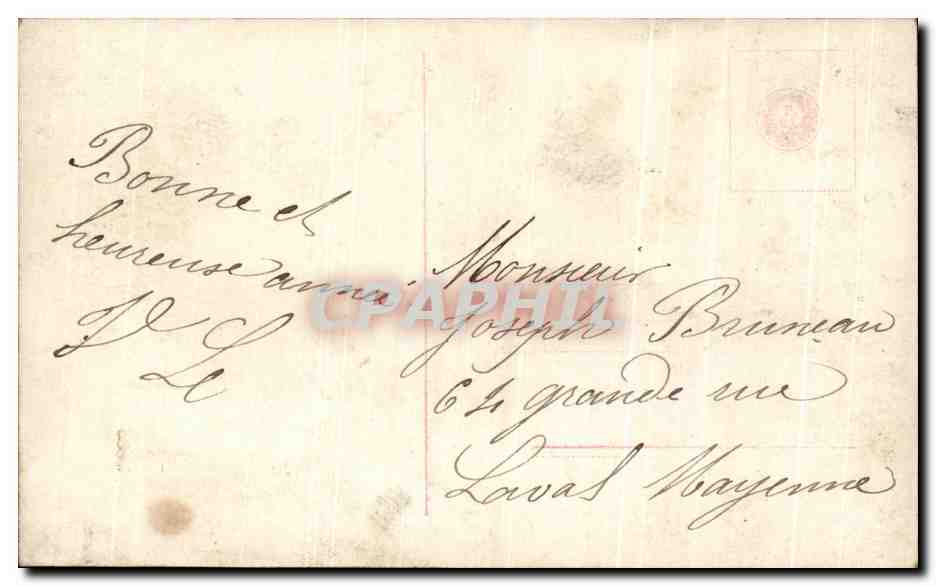 Bonne et
heureuse année
J Le
Monsieur
Joseph Bruneau
64 grande rue
Laval Mayenne
CPAPHIL